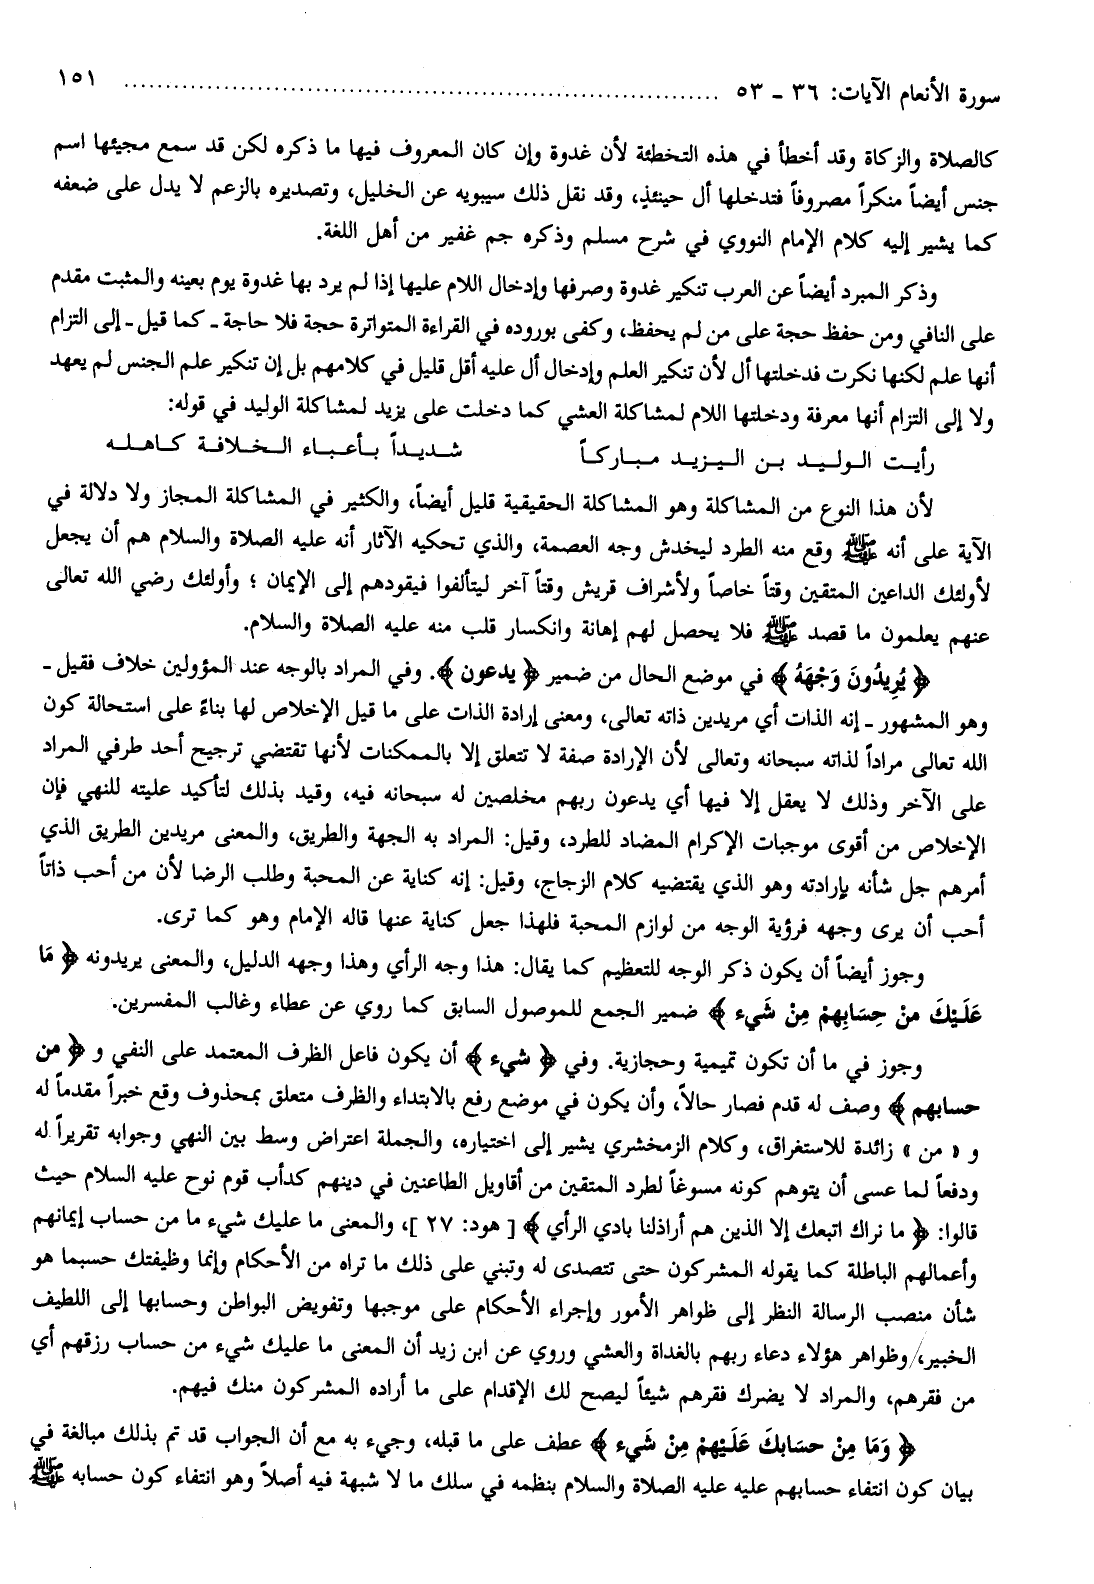 سورة الأنعام الآيات: ٣٦ ـ ٥٣ ................................................................ ١٥١
كالصلاة والزكاة وقد أخطأ في هذه التخطئة لأن غدوة وإن كان المعروف فيها ما ذكره لكن قد سمع مجيئها اسم
جنس أيضاً منكراً مصروفاً فتدخلها أل حينئذٍ، وقد نقل ذلك سيبويه عن الخليل، وتصديره بالزعم لا يدل على ضعفه
كما يشير إليه كلام الإمام النووي في شرح مسلم وذكره جم غفير من أهل اللغة.
وذكر المبرد أيضاً عن العرب تنكير غدوة وصرفها وإدخال اللام عليها إذا لم يرد بها غدوة يوم بعينه والمثبت مقدم
على النافي ومن حفظ حجة على من لم يحفظ، وكفى بوروده في القراءة المتواترة حجة فلا حاجة ـ كما قيل ـ إلى التزام
أنها علم لكنها نكرت فدخلتها أل لأن تنكير العلم وإدخال أل عليه أقل قليل في كلامهم بل إن تنكير علم الجنس لم يعهد
ولا إلى التزام أنها معرفة ودخلتها اللام لمشاكلة العشي كما دخلت على يزيد لمشاكلة الوليد في قوله:
رأيت الوليد بن اليزيد مباركاً شديداً بأعباء الخلافة كاهله
لأن هذا النوع من المشاكلة وهو المشاكلة الحقيقية قليل أيضاً، والكثير في المشاكلة المجاز ولا دلالة في
الآية على أنه ﷺ وقع منه الطرد ليخدش وجه العصمة، والذي تحكيه الآثار أنه عليه الصلاة والسلام هم أن يجعل
لأولئك الداعين المتقين وقتاً خاصاً ولأشراف قريش وقتاً آخر ليتألفوا فيقودهم إلى الإيمان ؛ وأولئك رضي الله تعالى
عنهم يعلمون ما قصد ﷺ فلا يحصل لهم إهانة وانكسار قلب منه عليه الصلاة والسلام.
﴿ يُرِيدُونَ وَجْهَهُ ﴾ في موضع الحال من ضمير ﴿ يدعون ﴾. وفي المراد بالوجه عند المؤولين خلاف فقيل ـ
وهو المشهور ـ إنه الذات أي مريدين ذاته تعالى، ومعنى إرادة الذات على ما قيل الإخلاص لها بناءً على استحالة كون
الله تعالى مراداً لذاته سبحانه وتعالى لأن الإرادة صفة لا تتعلق إلا بالممكنات لأنها تقتضي ترجيح أحد طرفي المراد
على الآخر وذلك لا يعقل إلا فيها أي يدعون ربهم مخلصين له سبحانه فيه، وقيد بذلك لتأكيد عليته للنهي فإن
الإخلاص من أقوى موجبات الإكرام المضاد للطرد، وقيل: المراد به الجهة والطريق، والمعنى مريدين الطريق الذي
أمرهم جل شأنه بإرادته وهو الذي يقتضيه كلام الزجاج، وقيل: إنه كناية عن المحبة وطلب الرضا لأن من أحب ذاتاً
أحب أن يرى وجهه فرؤية الوجه من لوازم المحبة فلهذا جعل كناية عنها قاله الإمام وهو كما ترى.
وجوز أيضاً أن يكون ذكر الوجه للتعظيم كما يقال: هذا وجه الرأي وهذا وجهه الدليل، والمعنى يريدونه ﴿ مَا
عَلَيْكَ مِنْ حِسَابِهِمْ مِنْ شَيْء ﴾ ضمير الجمع للموصول السابق كما روي عن عطاء وغالب المفسرين.
وجوز في ما أن تكون تميمية وحجازية. وفي ﴿ شيء ﴾ أن يكون فاعل الظرف المعتمد على النفي و ﴿ من
حسابهم ﴾ وصف له قدم فصار حالاً، وأن يكون في موضع رفع بالابتداء والظرف متعلق بمحذوف وقع خبراً مقدماً له
و « من » زائدة للاستغراق، وكلام الزمخشري يشير إلى اختياره، والجملة اعتراض وسط بين النهي وجوابه تقريراً له
ودفعاً لما عسى أن يتوهم كونه مسوغاً لطرد المتقين من أقاويل الطاعنين في دينهم كدأب قوم نوح عليه السلام حيث
قالوا: ﴿ ما نراك اتبعك إلا الذين هم أراذلنا بادي الرأي ﴾ [ هود: ٢٧ ]، والمعنى ما عليك شيء ما من حساب إيمانهم
وأعمالهم الباطلة كما يقوله المشركون حتى تتصدى له وتبني على ذلك ما تراه من الأحكام وإنما وظيفتك حسبما هو
شأن منصب الرسالة النظر إلى ظواهر الأمور وإجراء الأحكام على موجبها وتفويض البواطن وحسابها إلى اللطيف
الخبير، وظواهر هؤلاء دعاء ربهم بالغداة والعشي وروي عن ابن زيد أن المعنى ما عليك شيء من حساب رزقهم أي
من فقرهم، والمراد لا يضرك فقرهم شيئاً ليصح لك الإقدام على ما أراده المشركون منك فيهم.
﴿ وَمَا مِنْ حسَابكَ عَلَيْهِمْ مِنْ شَيْء ﴾ عطف على ما قبله، وجيء به مع أن الجواب قد تم بذلك مبالغة في
بيان كون انتفاء حسابهم عليه عليه الصلاة والسلام بنظمه في سلك ما لا شبهة فيه أصلاً وهو انتفاء كون حسابه ﷺ